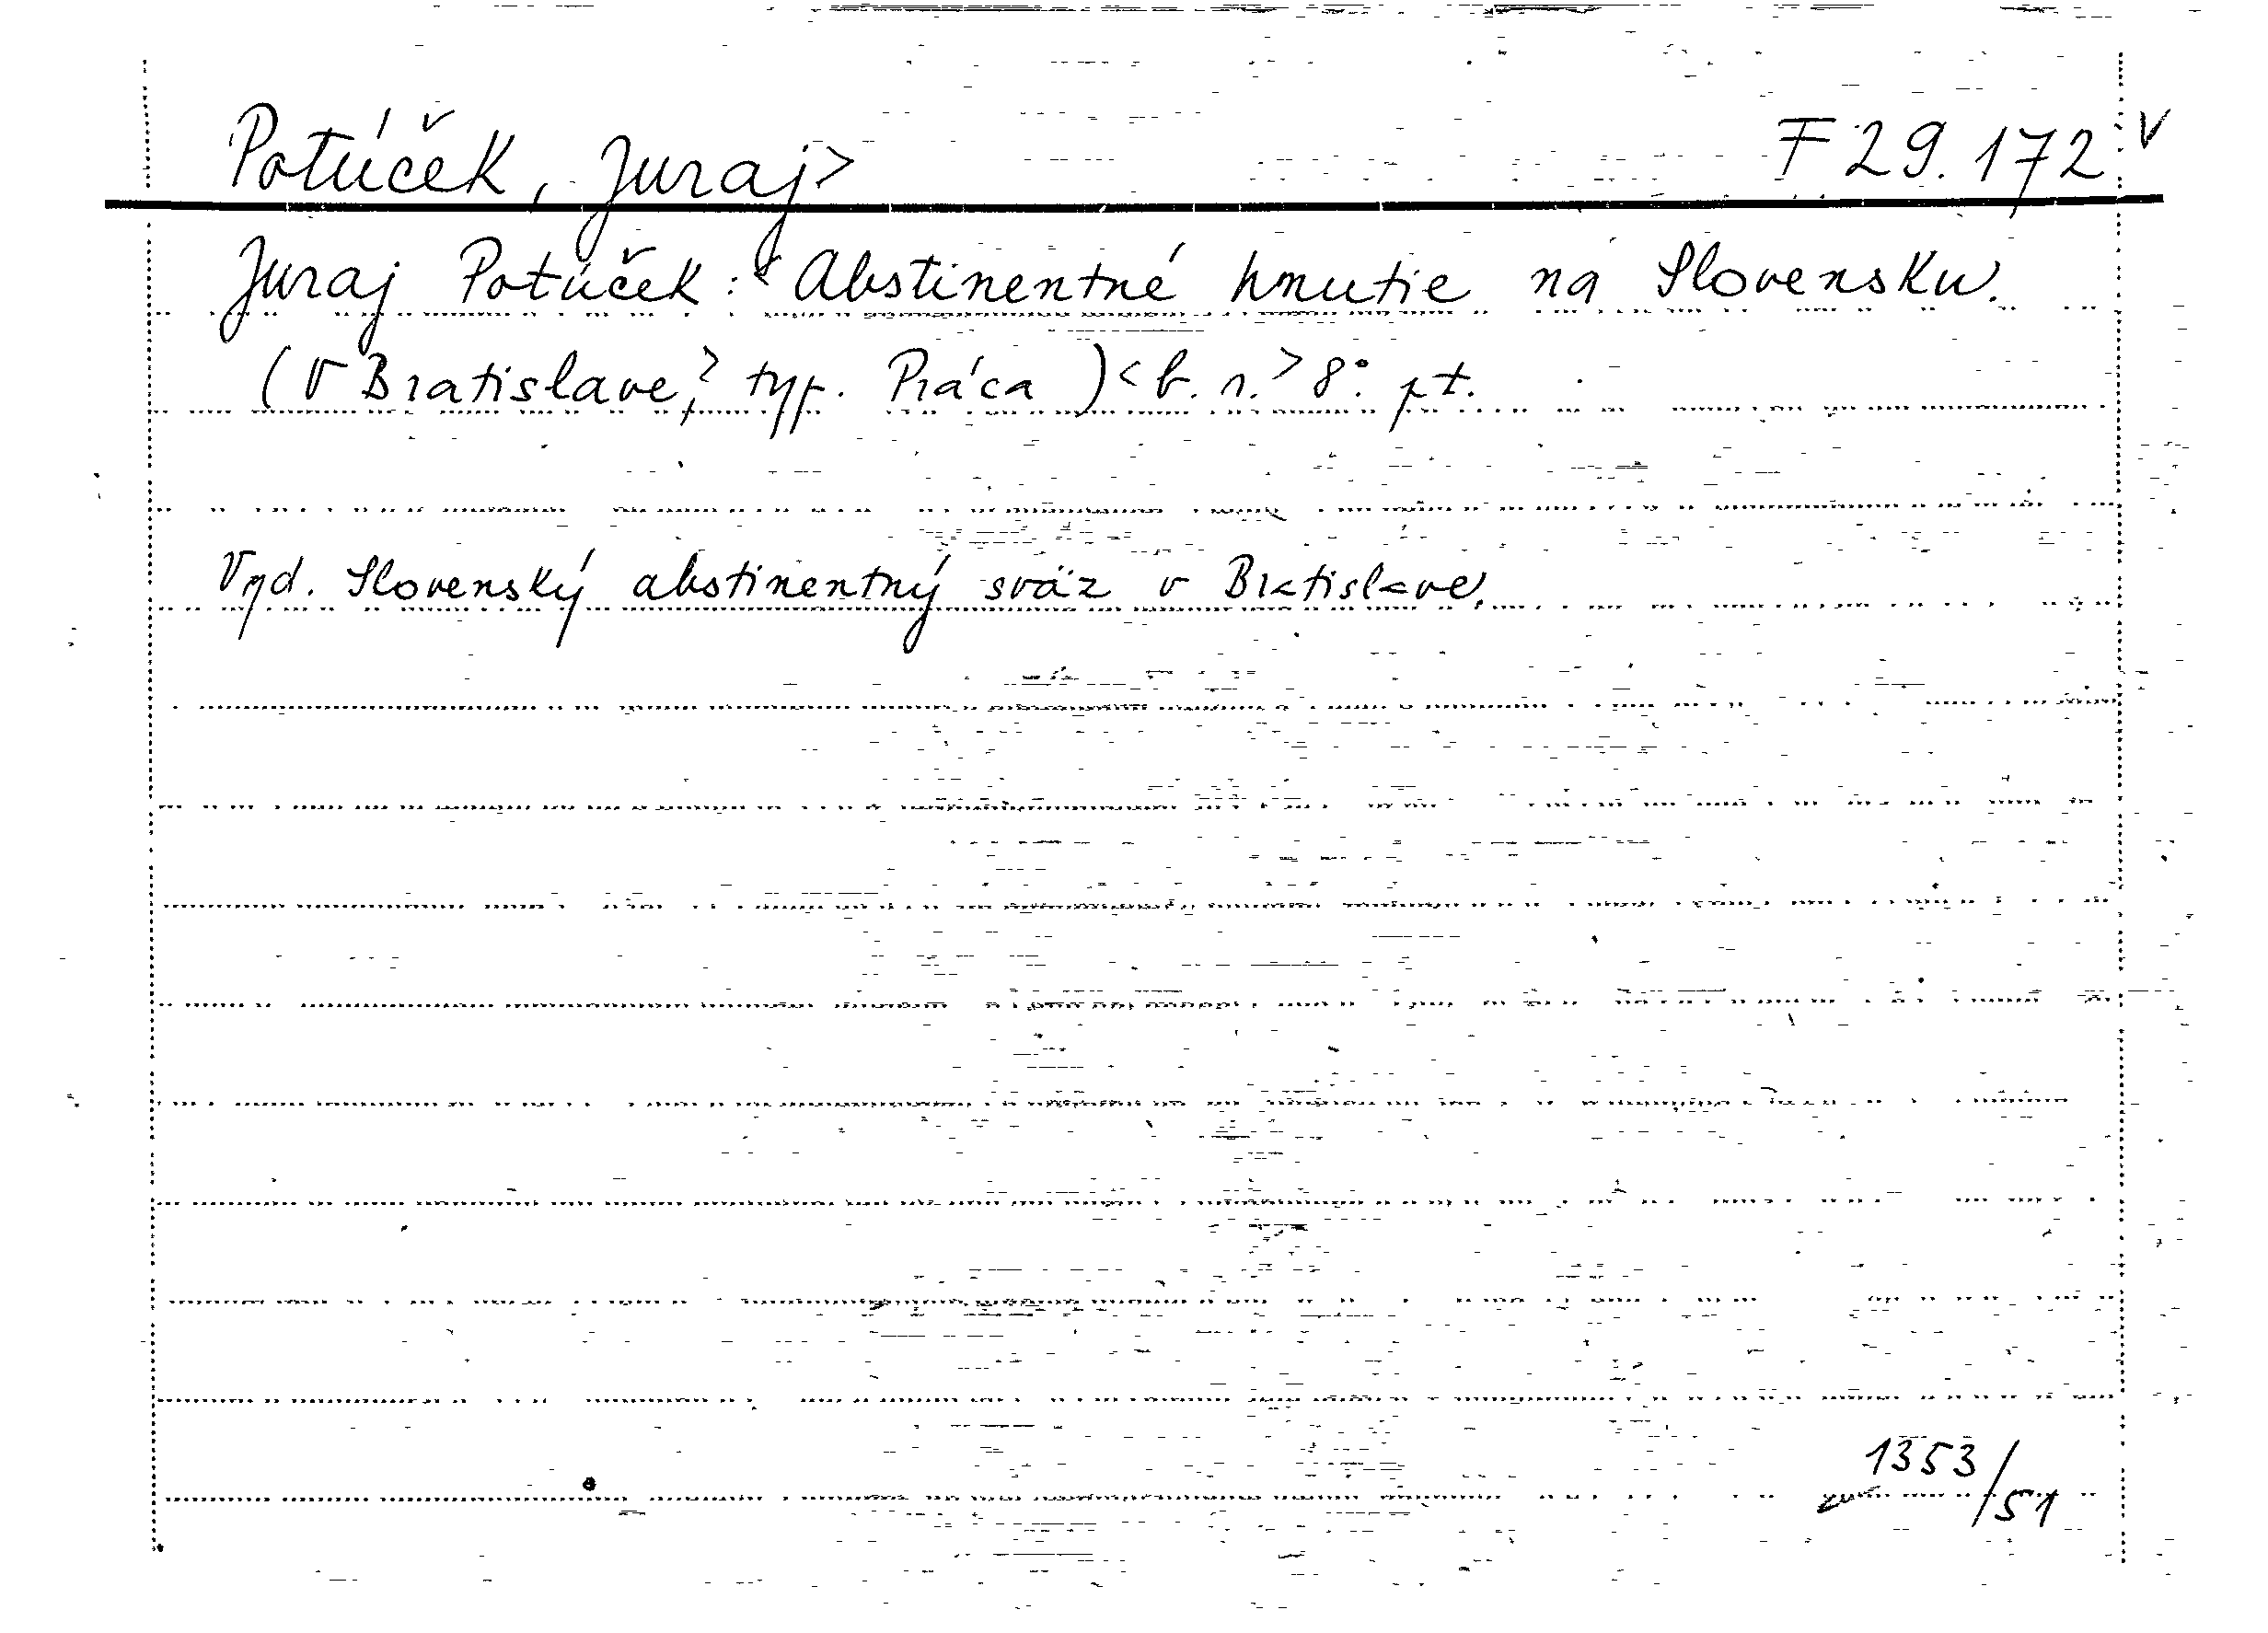 Potúček, Juraj> F 29.172 v
Juraj Potúček:< Abstinentné hnutie na Slovensku.
(V Bratislave,? typ. Práca)<b. r.> 8° pt.
Vyd. Slovenský abstinentný sväz v Bratislave.
1353/51